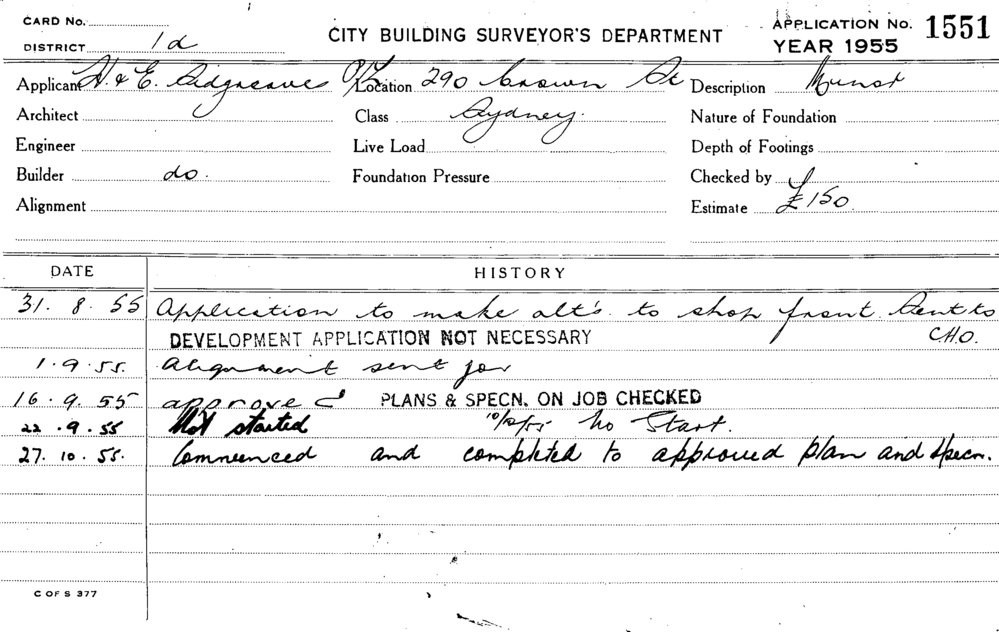 CARD No. APPLICATION No. 1551
DISTRICT 1d CITY BUILDING SURVEYOR'S DEPARTMENT YEAR 1955
Applicant H & E. Sidgreaves P/L Location 290 Crown St Description
Architect Class Sydney. Nature of Foundation
Engineer Live Load Depth of Footings
Builder do. Foundation Pressure Checked by
Alignment Estimate £150.
DATE HISTORY
31. 8. 55 Application to make alt's. to shop front. Sent to
DEVELOPMENT APPLICATION NOT NECESSARY C.H.O.
1. 9. 55. Alignment sent for
16. 9. 55 approved PLANS & SPECN. ON JOB CHECKED
22. 9. 55 Not started 10/10/55 No Start.
27. 10. 55. Commenced and completed to approved plan and specn.
C OF S 377